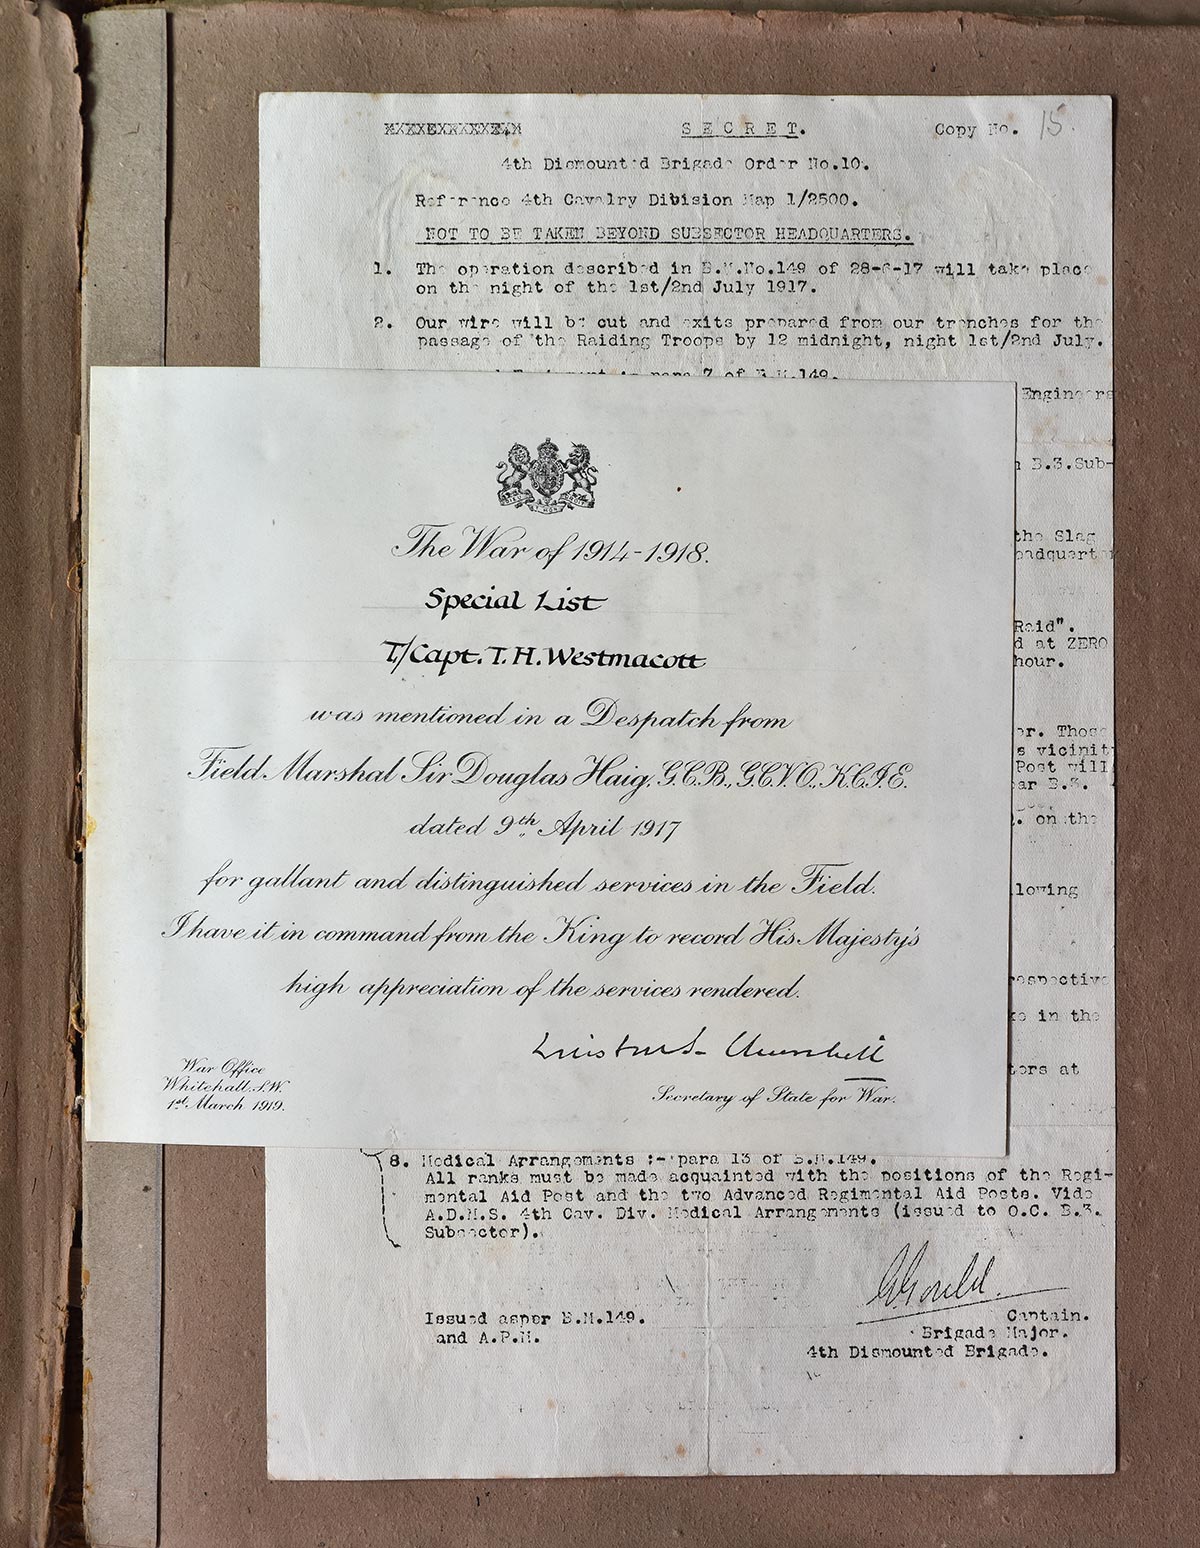 SECRET.
Copy No. 15.
4th Dismounted Brigade Order No.10.
Reference 4th Cavalry Dibision Map 1/2500.
NOT TO BE TAKEN BEYOND SUBSECTOR HEADQUARTERS.
1. The operation described in B.M.No.149 of 28-6-17 will take place
on the night of the 1st/2nd July 1917.
2. Our wire will be cut and exits prepared from our trenches for the
passage of the Raiding Troops by 12 midnight, night 1st/2nd July.
para 7 of B.M.149.
Engineers
B.3.Sub-
the Slag
Raid".
d at ZERO
hour.
or. Those
s vicinit
Post will
ar B.3.
. on the
lowing
respective
ke in the
tors at
The War of 1914-1918.
Special List
T/Capt. T. H. Westmacott
was mentioned in a Despatch from
Field Marshal Sir Douglas Haig, G.C.B., G.C.V.O., K.C.I.E.
dated 9th April 1917
for gallant and distinguished services in the Field.
I have it in command from the King to record His Majesty's
high appreciation of the services rendered.
Winston S. Churchill
Secretary of State for War.
War Office
Whitehall, S.W.
1st March 1919.
8. Medical Arrangements :- para 13 of B.M.149.
All ranks must be made acquainted with the positions of the Regi-
mental Aid Post and the two Advanced Regimental Aid Posts. Vide
A.D.M.S. 4th Cav. Div. Medical Arrangements (issued to O.C. B.3.
Subsector).
Issued asper B.M.149.
and A.P.M.
Captain.
Brigade Major.
4th Dismounted Brigade.